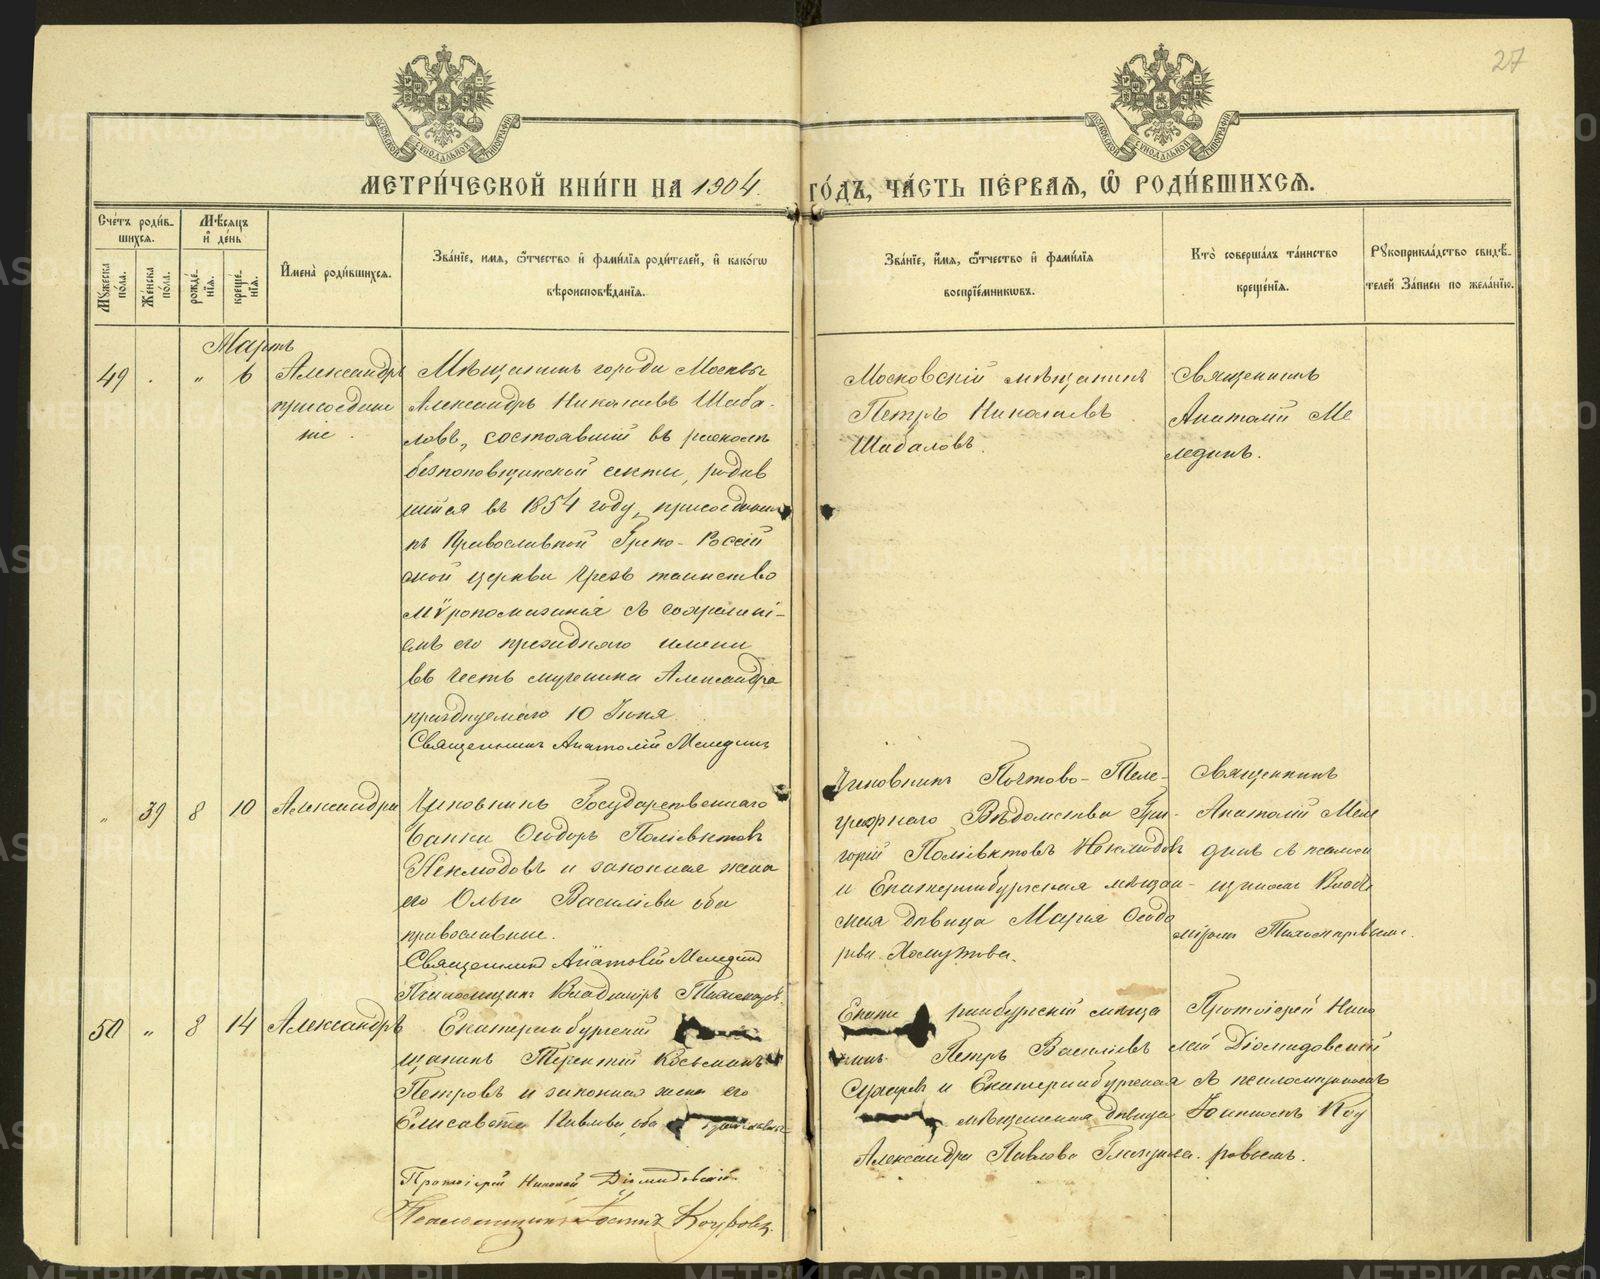 27
МОСКОВСКОЙ СѴНОДАЛЬНОЙ ТИПОГРАФІИ
МОСКОВСКОЙ СѴНОДАЛЬНОЙ ТИПОГРАФІИ
МЕТРИ́ЧЕСКОЙ КНИ́ГИ НА 1904. ГО́ДЪ, ЧА́СТЬ ПЕ́РВАЯ, Ѽ РОДИ́ВШИХСЯ.
Сче́тъ роди́в-
шихся.
Мꙋ́жеска по́ла.
Же́нска по́ла.
Мѣ́сяцъ
и҆ де́нь
рожде́-
нїя.
креще́-
нїя.
И҆мена̀ роди́вшихся.
Зва́нїе, и҆мя, ѻ҆́тчество и҆ фами́лїя роди́телей, и҆ како́гѡ
вѣроисповѣ́данїя.
Зва́нїе, и҆́мя, ѻ҆́тчество и҆ фами́лїя
воспрїе́мникѡвъ.
Кто̀ соверша́лъ та́инство
креще́нїя.
Рꙋкоприкла́дство свидѣ́-
телей За́писи по жела́нїю.
Мартъ
49 . " 6 Александръ
присоедине
ніе.
Мѣщанинъ города Москвы
Александръ Николаевъ Шаба-
ловъ, состоявшій въ расколѣ
безпоповщинской секты, родив
шійся въ 1854 году, присоединенъ
къ Православной Греко-Россій
ской церкви чрезъ таинство
мѵропомазанія съ сохранені-
емъ его прежняго имени
въ честь мученика Александра
празднуемаго 10 Іюня.
Священникъ Анатолій Мелединъ
Московскій мѣщанинъ
Петръ Николаевъ
Шабаловъ.
Священникъ
Анатолій Ме
лединъ.
" 39 8 10 Александра
Чиновникъ Государственнаго
банка Ѳеодоръ Поліевктовъ
Неклюдовъ и законная жена
его Ольга Василіева оба
православные.
Священникъ Анатолій Мелединъ
Псаломщикъ Владиміръ
Чиновникъ Почтово-Теле-
графнаго Вѣдомства Гри-
горій Поліевктовъ Неклюдовъ
и Екатеринбургская мѣщан-
ская дѣвица Марія Ѳеодо
рова Хомутова.
Священникъ
Анатолій Меле
динъ съ псалом
щикомъ Влади
міромъ
50 " 8 14 Александръ
Екатеринбургскій
щанинъ Терентій Козьминъ
Петровъ и законная жена его
Елисавета Павлова, оба православные
Протоіерей Николай Діомидовскій
Псаломщикъ Іоаннъ Коуровъ.
Екате ринбургскій мѣща
нинъ Петръ Василіевъ
Сухаревъ и Екатеринбургская
мѣщанская дѣвица
Александра Павлова
Протоіерей Нико
лай Діомидовскій
съ псаломщикомъ
Іоанномъ Коу
ровымъ.